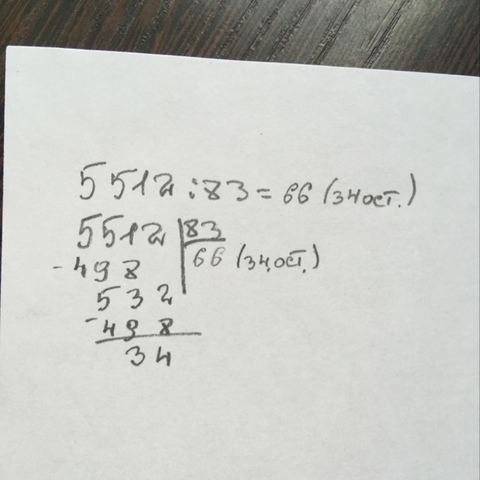 5512:83=66 (34ост.)
5512 83
-498 66 (34ост.)
532
-498
34